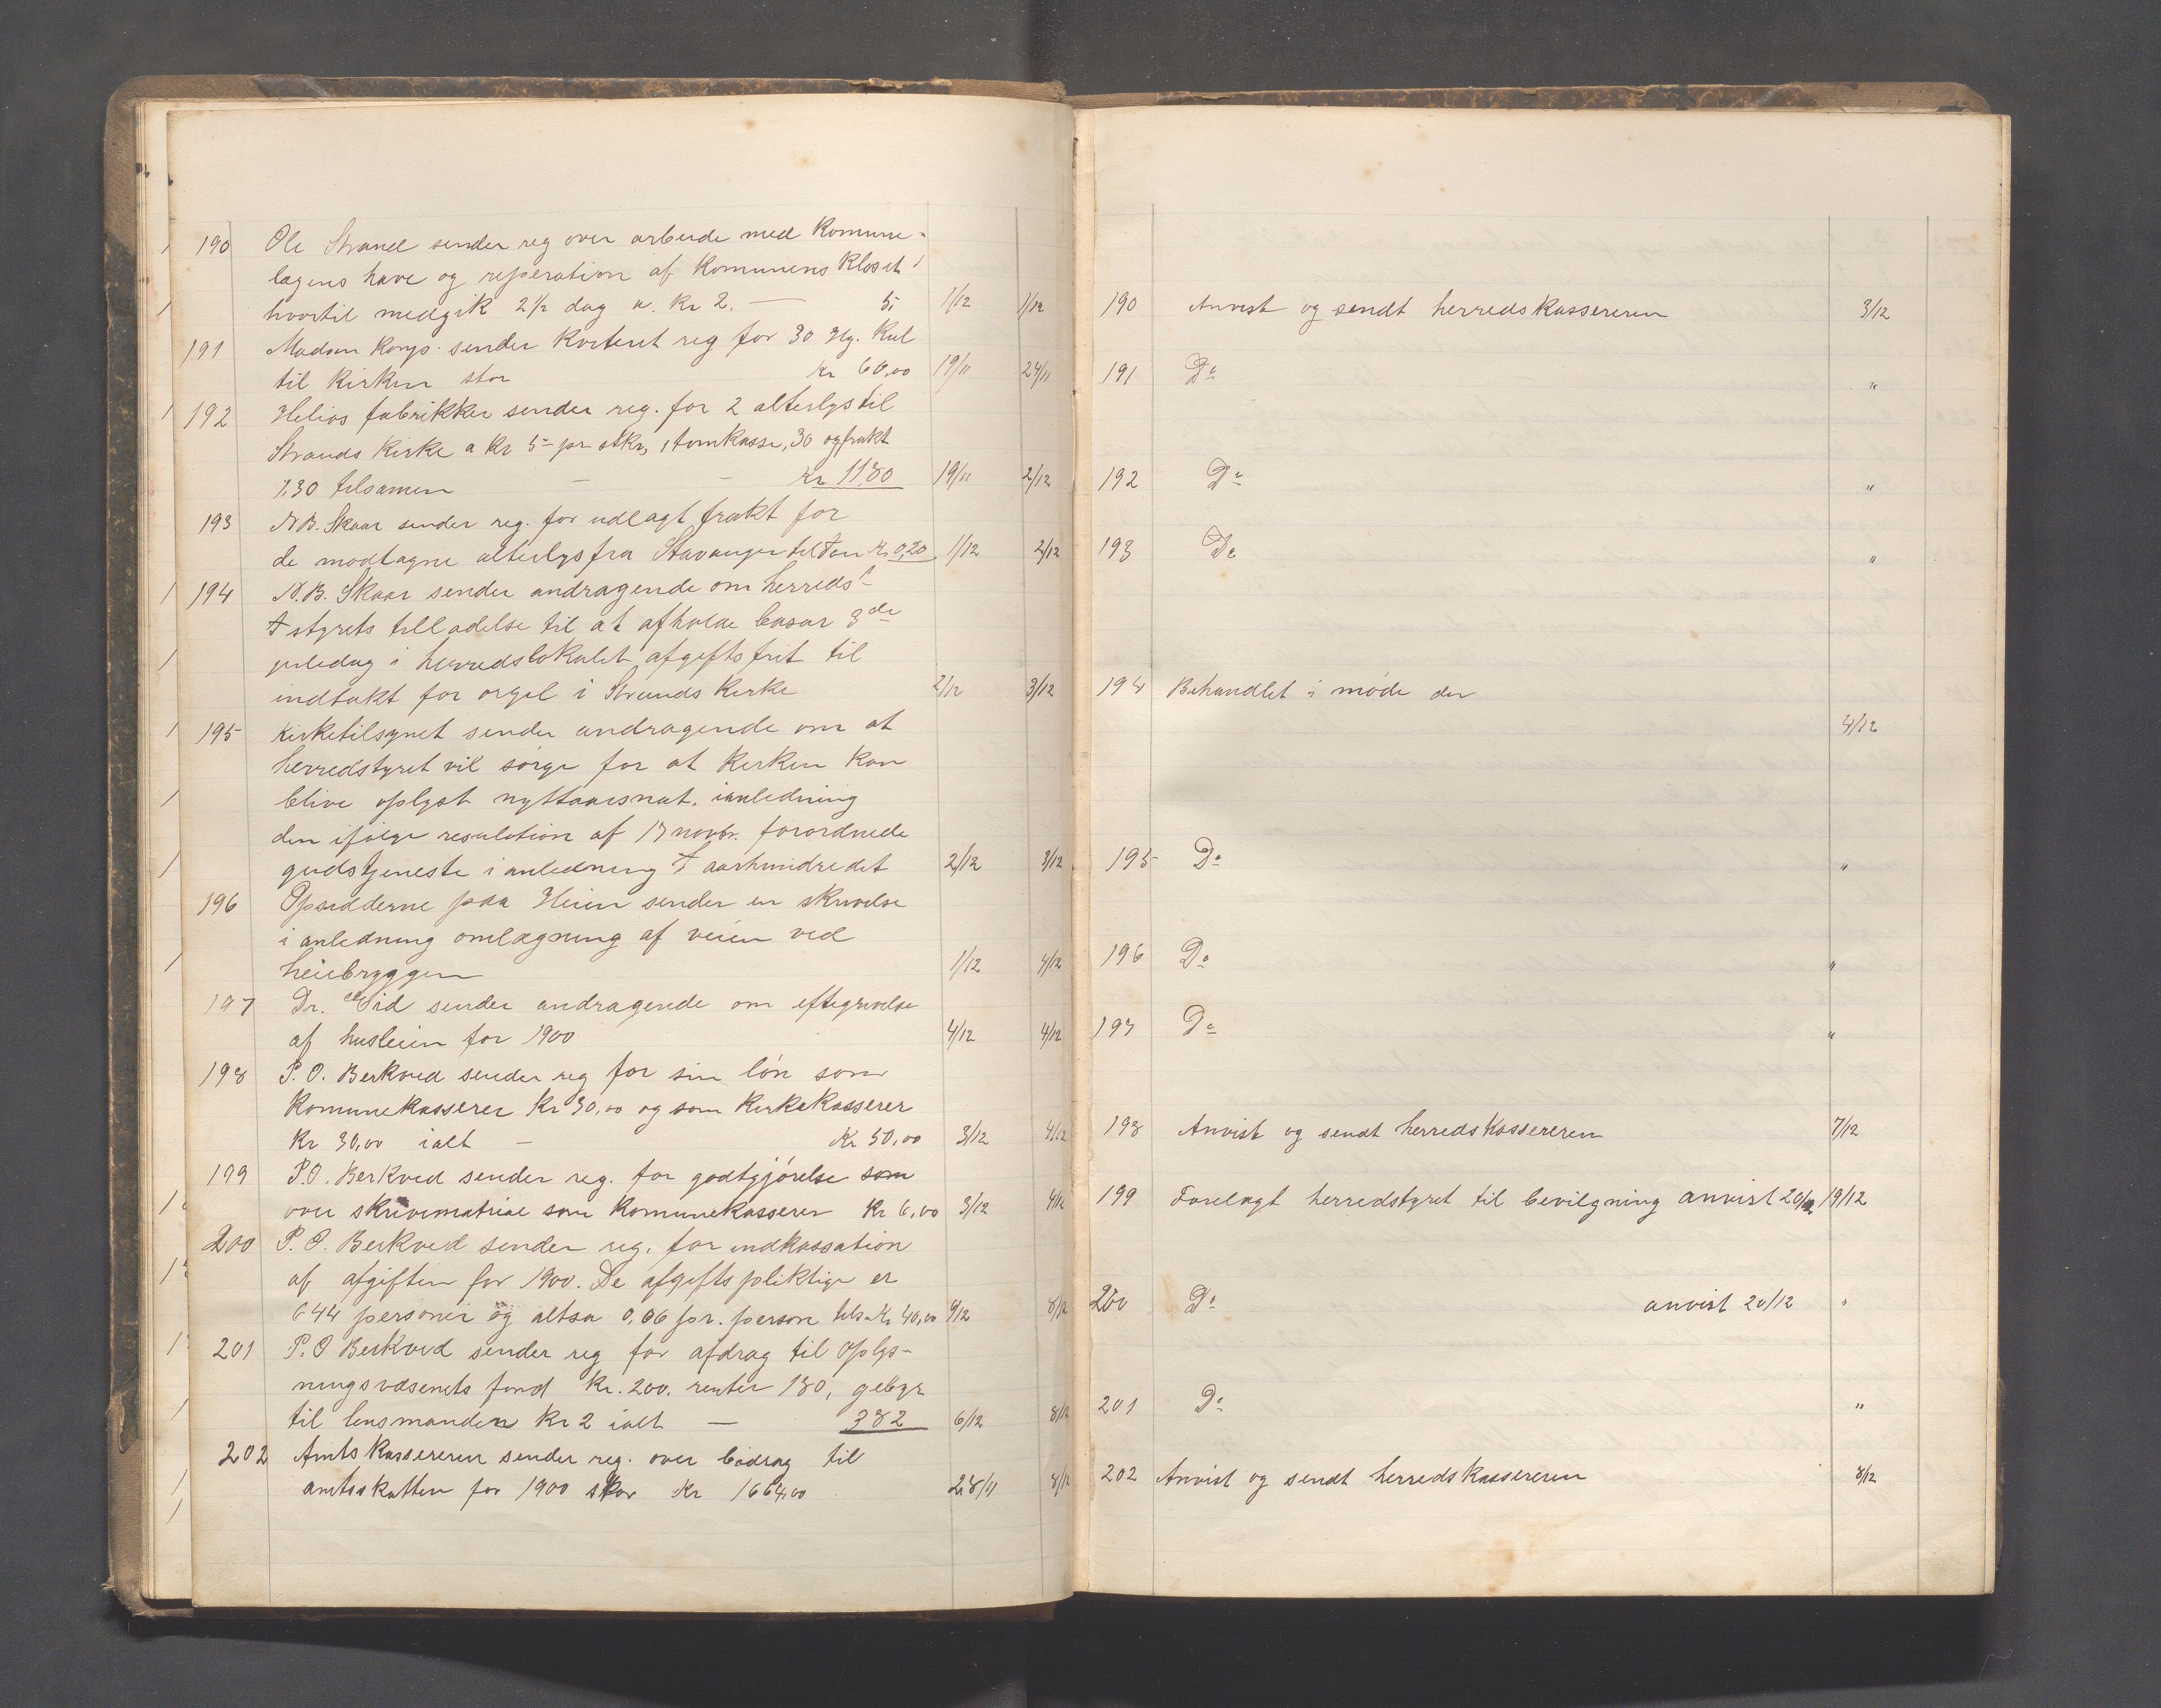 190 Ole Strand sender reg over arbeide med Komune-
lægens have og reperation af Komunens Kloset
hvortil medgik 2½ dag a. Kr 2. — 5, 1/12 1/12
191 Madsen sender Kvitert reg for 30 Hg. Kul
til Kirken stor Kr 60,00 19/11 24/11
192 Helios fabrikker sender reg. for 2 alterlys til
Strands Kirke a Kr 5- pr stk, 1 tomkasse, 30 og frakt
1,30 tilsamen — - Kr 11,80 19/11 2/12
193 N.B. Skaar sender reg. for udlagt frakt for
de modtagne alterlys fra Stavanger til Tau Kr 0,20 1/12 2/12
194 N.B. Skaar sender andragende om herreds-
styrets tilladelse til at afholde basar 3de
juledag i herredslokalet afgiftsfrit til
indtækt for orgel i Strands Kirke 2/12 3/12
195 Kirketilsynet sender andragende om at
herredstyret vil sørge for at Kirken kan
blive oplyst nyttaarsnat. ianledning
den ifølge resulotion af 17 novbr. forordnede
gudstjeneste i anledning aarhundredet 2/12 3/12
196 Opsidderne paa Heien sender en skrivelse
i anledning omlægning af veien ved
heiebryggen 1/12 4/12
197 Dr. Eid sender andragende om eftegivelse
af husleien for 1900 4/12 4/12
198 P. O. Berkved sender reg for sin løn som
Komunekasserer Kr 30,00 og som Kirkekasserer
Kr 30,00 ialt — Kr 50,00 3/12 4/12
199 P.O. Berkved sender reg. for godtgjørelse som
over skrivematriae som Komunekasserer Kr 6,00 3/12 4/12
200 P. O. Berkved sender reg. for indkassation
af afgiften for 1900. De afgiftspliktige er
644 personer og altsa 0,06 pr. person tils. Kr 40,00 /12 8/12
201 P. O Berkved sender reg for afdrag til Oplys-
ningsvæsenets fond Kr. 200. renter 180, gebyr
til lensmanden Kr 2 ialt — 382 6/12 8/12
202 Amtskassereren sender reg. over bidrag til
amtsskatten for 1900 stor Kr 1664,00 28/11 8/12
190 Anvist og sendt herredskassereren 3/12
191 Do "
192 Do "
193 Do "
194 Behandlet i møde den
4/12
195 Do "
196 Do "
197 Do "
198 Anvist og sendt herredskassereren 7/12
199 Forelagt herredstyret til bevilgning anvist 20/12 19/12
200 Do anvist 20/12 "
201 Do "
202 Anvist og sendt herredskassereren 8/12